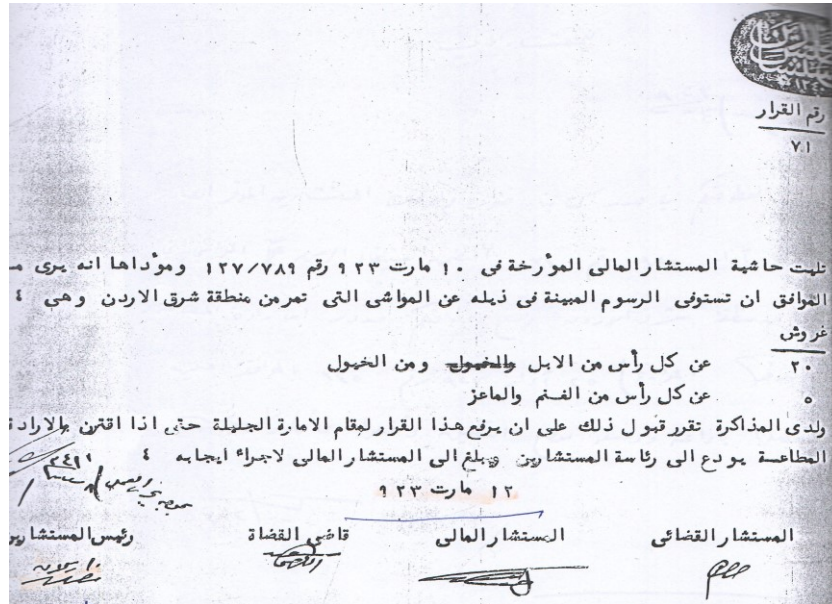 رقم القرار
٧١
تليت حاشية المستشار المالى المؤرخة فى ١٠ مارت ٩٢٣ رقم ١٢٧/٧٨٩ ومؤداها انه يرى مـ
الموافق ان تستوفى الرسوم المبينة فى ذيله عن المواشى التى تمر من منطقة شرق الاردن وهى ٤
غروش
٢٠ عن كل رأس من الابل والخيول ومن الخيول
٥ عن كل رأس من الغنم والماعز
ولدى المذاكرة تقرر قبول ذلك على ان يرفع هذا القرار لمقام الامارة الجليلة حتى اذا اقترن بالارادة
المطاعة يودع الى رئاسة المستشارين ويبلغ الى المستشار المالى لاجراء ايجابه ٤
١٢ مارت ٩٢٣
المستشار القضائى المستشار المالى قاضى القضاة رئيس المستشارين